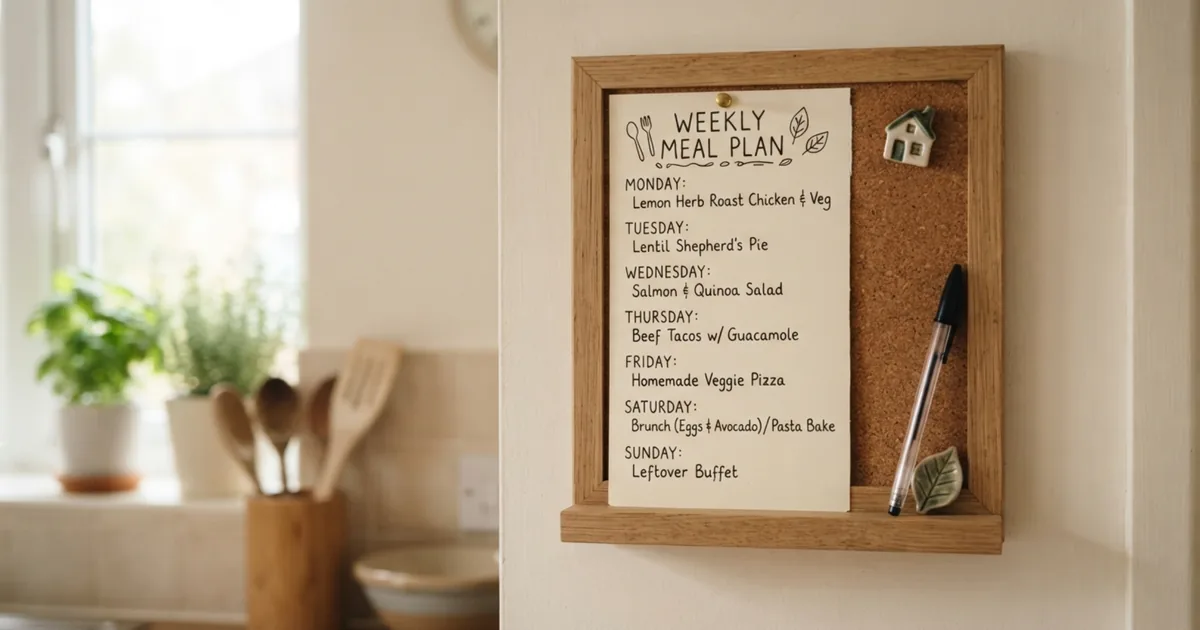 WEEKLY
MEAL PLAN
MONDAY:
Lemon Herb Roast Chicken & Veg
TUESDAY:
Lentil Shepherd's Pie
WEDNESDAY:
Salmon & Quinoa Salad
THURSDAY:
Beef Tacos w/ Guacamole
FRIDAY:
Homemade Veggie Pizza
SATURDAY:
Brunch (Eggs & Avocado)/Pasta Bake
SUNDAY:
Leftover Buffet